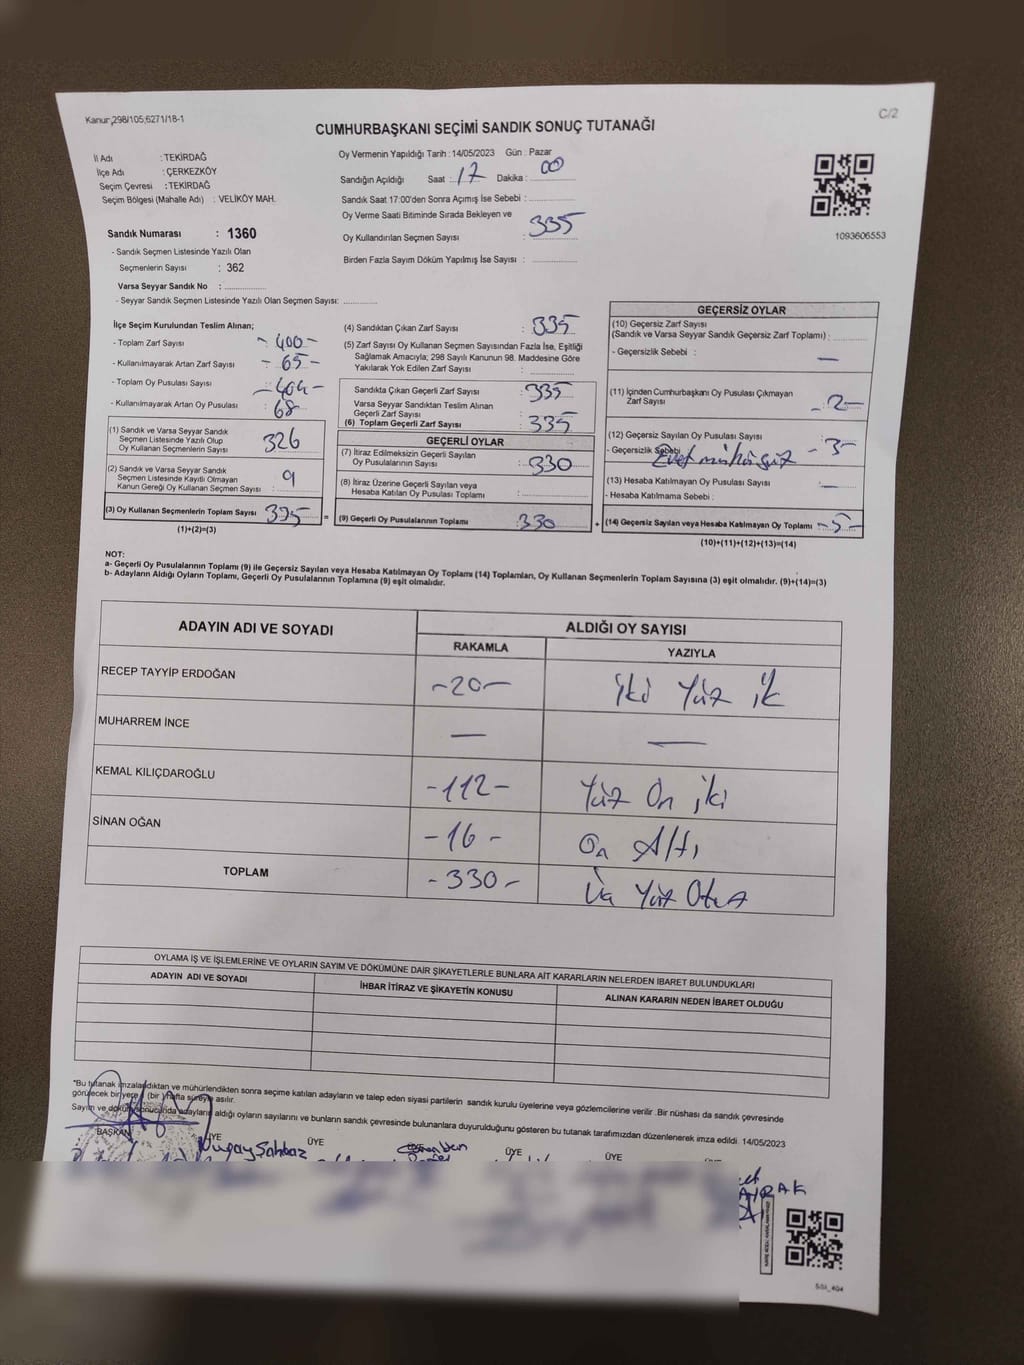 Kanun 298/105;6271/18-1
C/2
CUMHURBAŞKANI SEÇİMİ SANDIK SONUÇ TUTANAĞI
İl Adı : TEKİRDAĞ
İlçe Adı : ÇERKEZKÖY
Seçim Çevresi : TEKİRDAĞ
Seçim Bölgesi (Mahalle Adı) : VELİKÖY MAH.
Sandık Numarası : 1360
- Sandık Seçmen Listesinde Yazılı Olan
Seçmenlerin Sayısı : 362
Varsa Seyyar Sandık No :
- Seyyar Sandık Seçmen Listesinde Yazılı Olan Seçmen Sayısı:
Oy Vermenin Yapıldığı Tarih : 14/05/2023 Gün : Pazar
Sandığın Açıldığı Saat : 17 Dakika : 00
Sandık Saat 17:00'den Sonra Açımış İse Sebebi :
Oy Verme Saati Bitiminde Sırada Bekleyen ve
Oy Kullandırılan Seçmen Sayısı : 335
Birden Fazla Sayım Döküm Yapılmış İse Sayısı :
1093606553
İlçe Seçim Kurulundan Teslim Alınan;
- Toplam Zarf Sayısı : - 400 -
- Kullanılmayarak Artan Zarf Sayısı : - 65 -
- Toplam Oy Pusulası Sayısı : - 404 -
- Kullanılmayarak Artan Oy Pusulası : 68
(1) Sandık ve Varsa Seyyar Sandık
Seçmen Listesinde Yazılı Olup
Oy Kullanan Seçmenlerin Sayısı : 326
(2) Sandık ve Varsa Seyyar Sandık
Seçmen Listesinde Kayıtlı Olmayan
Kanun Gereği Oy Kullanan Seçmen Sayısı : 9
(3) Oy Kullanan Seçmenlerin Toplam Sayısı : 335 =
(1)+(2)=(3)
(4) Sandıktan Çıkan Zarf Sayısı : 335
(5) Zarf Sayısı Oy Kullanan Seçmen Sayısından Fazla İse, Eşitliği
Sağlamak Amacıyla; 298 Sayılı Kanunun 98. Maddesine Göre
Yakılarak Yok Edilen Zarf Sayısı :
Sandıkta Çıkan Geçerli Zarf Sayısı : 335
Varsa Seyyar Sandıktan Teslim Alınan
Geçerli Zarf Sayısı :
(6) Toplam Geçerli Zarf Sayısı : 335
GEÇERLİ OYLAR
(7) İtiraz Edilmeksizin Geçerli Sayılan
Oy Pusulalarının Sayısı : 330
(8) İtiraz Üzerine Geçerli Sayılan veya
Hesaba Katılan Oy Pusulası Toplamı :
(9) Geçerli Oy Pusulalarının Toplamı : 330 +
GEÇERSİZ OYLAR
(10) Geçersiz Zarf Sayısı
(Sandık ve Varsa Seyyar Sandık Geçersiz Zarf Toplamı) :
- Geçersizlik Sebebi : —
(11) İçinden Cumhurbaşkanı Oy Pusulası Çıkmayan
Zarf Sayısı : - 2 -
(12) Geçersiz Sayılan Oy Pusulası Sayısı : - 3 -
- Geçersizlik Sebebi : Evet mühürsüz
(13) Hesaba Katılmayan Oy Pusulası Sayısı : —
- Hesaba Katılmama Sebebi :
(14) Geçersiz Sayılan veya Hesaba Katılmayan Oy Toplamı : - 5 -
(10)+(11)+(12)+(13)=(14)
NOT:
a- Geçerli Oy Pusulalarının Toplamı (9) ile Geçersiz Sayılan veya Hesaba Katılmayan Oy Toplamı (14) Toplamları, Oy Kullanan Seçmenlerin Toplam Sayısına (3) eşit olmalıdır. (9)+(14)=(3)
b- Adayların Aldığı Oyların Toplamı, Geçerli Oy Pusulalarının Toplamına (9) eşit olmalıdır.
ADAYIN ADI VE SOYADI
ALDIĞI OY SAYISI
RAKAMLA
YAZIYLA
RECEP TAYYİP ERDOĞAN - 20 - İki Yüz ik
MUHARREM İNCE — —
KEMAL KILIÇDAROĞLU - 112 - Yüz On iki
SİNAN OĞAN - 16 - On Altı
TOPLAM - 330 - Üç Yüz Otuz
OYLAMA İŞ VE İŞLEMLERİNE VE OYLARIN SAYIM VE DÖKÜMÜNE DAİR ŞİKAYETLERLE BUNLARA AİT KARARLARIN NELERDEN İBARET BULUNDUKLARI
ADAYIN ADI VE SOYADI
İHBAR İTİRAZ VE ŞİKAYETİN KONUSU
ALINAN KARARIN NEDEN İBARET OLDUĞU
*Bu tutanak imzalandıktan ve mühürlendikten sonra seçime katılan adayların ve talep eden siyasi partilerin sandık kurulu üyelerine veya gözlemcilerine verilir. Bir nüshası da sandık çevresinde
görülecek bir yere (bir) hafta süreyle asılır.
Sayım ve döküm sonucunda adayların aldığı oyların sayılarını ve bunların sandık çevresinde bulunanlara duyurulduğunu gösteren bu tutanak tarafımızdan düzenlenerek imza edildi. 14/05/2023
BAŞKAN
ÜYE
ÜYE
ÜYE
ÜYE
Şahbaz